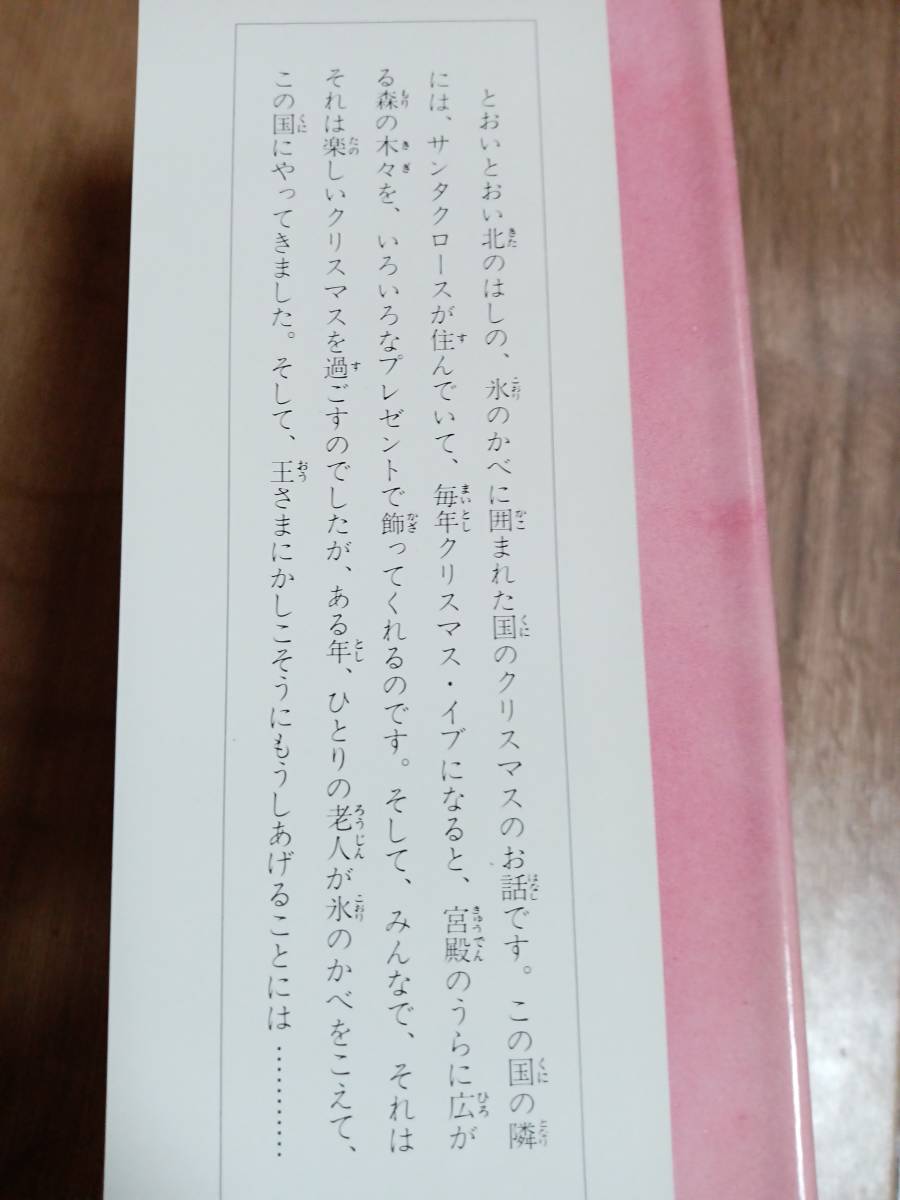 とおいとおい北のはしの、氷のかべに囲まれた国のクリスマスのお話です。この国の隣
には、サンタクロースが住んでいて、毎年クリスマス・イブになると、宮殿のうらに広が
る森の木々を、いろいろなプレゼントで飾ってくれるのです。そして、みんなで、それは
それは楽しいクリスマスを過ごすのでしたが、ある年、ひとりの老人が氷のかべをこえて、
この国にやってきました。そして、王さまにかしこそうにもうしあげることには…………